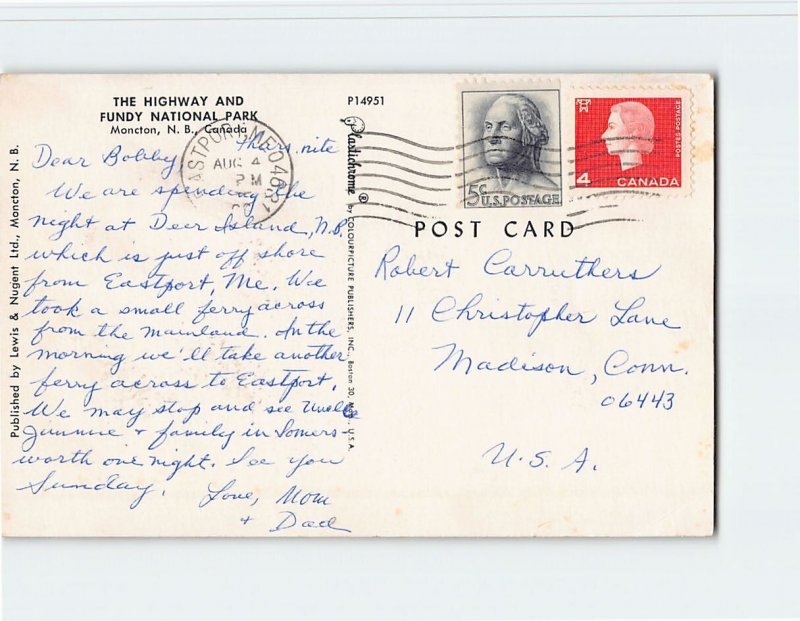 THE HIGHWAY AND
FUNDY NATIONAL PARK
Moncton, N. B., Canada
Thurs. nite
Dear Bobby
We are spending the
night at Deer Island, N.B.
which is just off shore
from Eastport, Me. We
took a small ferry across
from the mainland. In the
morning we'll take another
ferry across to Eastport.
We may stop and see Uncle
Jimmie + family in Somers-
worth one night. See you
Sunday. Love, Mom
+ Dad
Published by Lewis & Nugent Ltd., Moncton, N. B.
P14951
Plastichrome ® by COLOURPICTURE PUBLISHERS, INC., Boston 30, Mass., U.S.A.
EASTPORT, ME 04631
AUG 4
PM
5c
U.S. POSTAGE
4
CANADA
POSTES POSTAGE
POST CARD
Robert Carruthers
11 Christopher Lane
Madison, Conn.
06443
U.S.A.